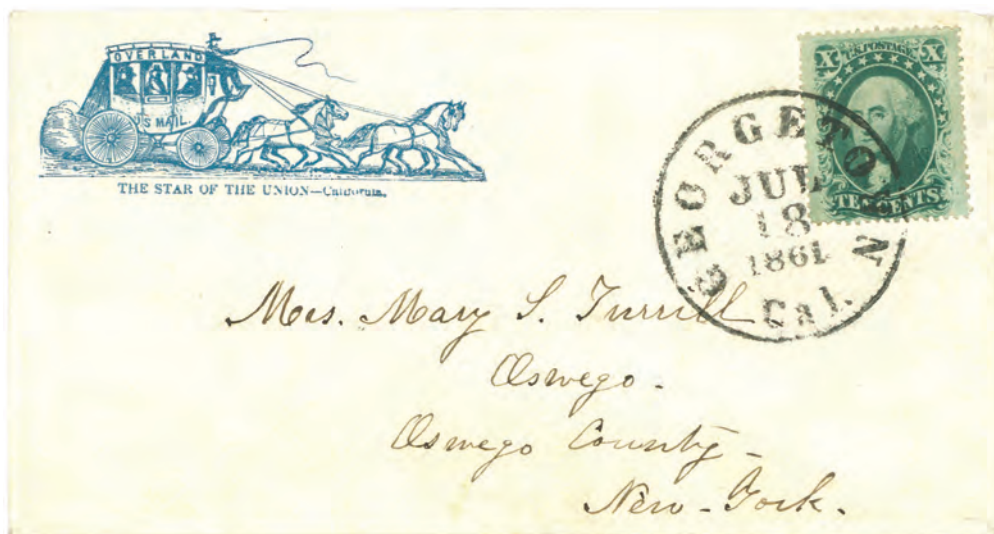 OVERLAND
U S MAIL.
THE STAR OF THE UNION—California.
X U.S. POSTAGE X
TEN CENTS
GEORGETOWN
JUL
18
1861
Cal.
Mrs. Mary S. Turrill
Oswego.
Oswego County
New-York.